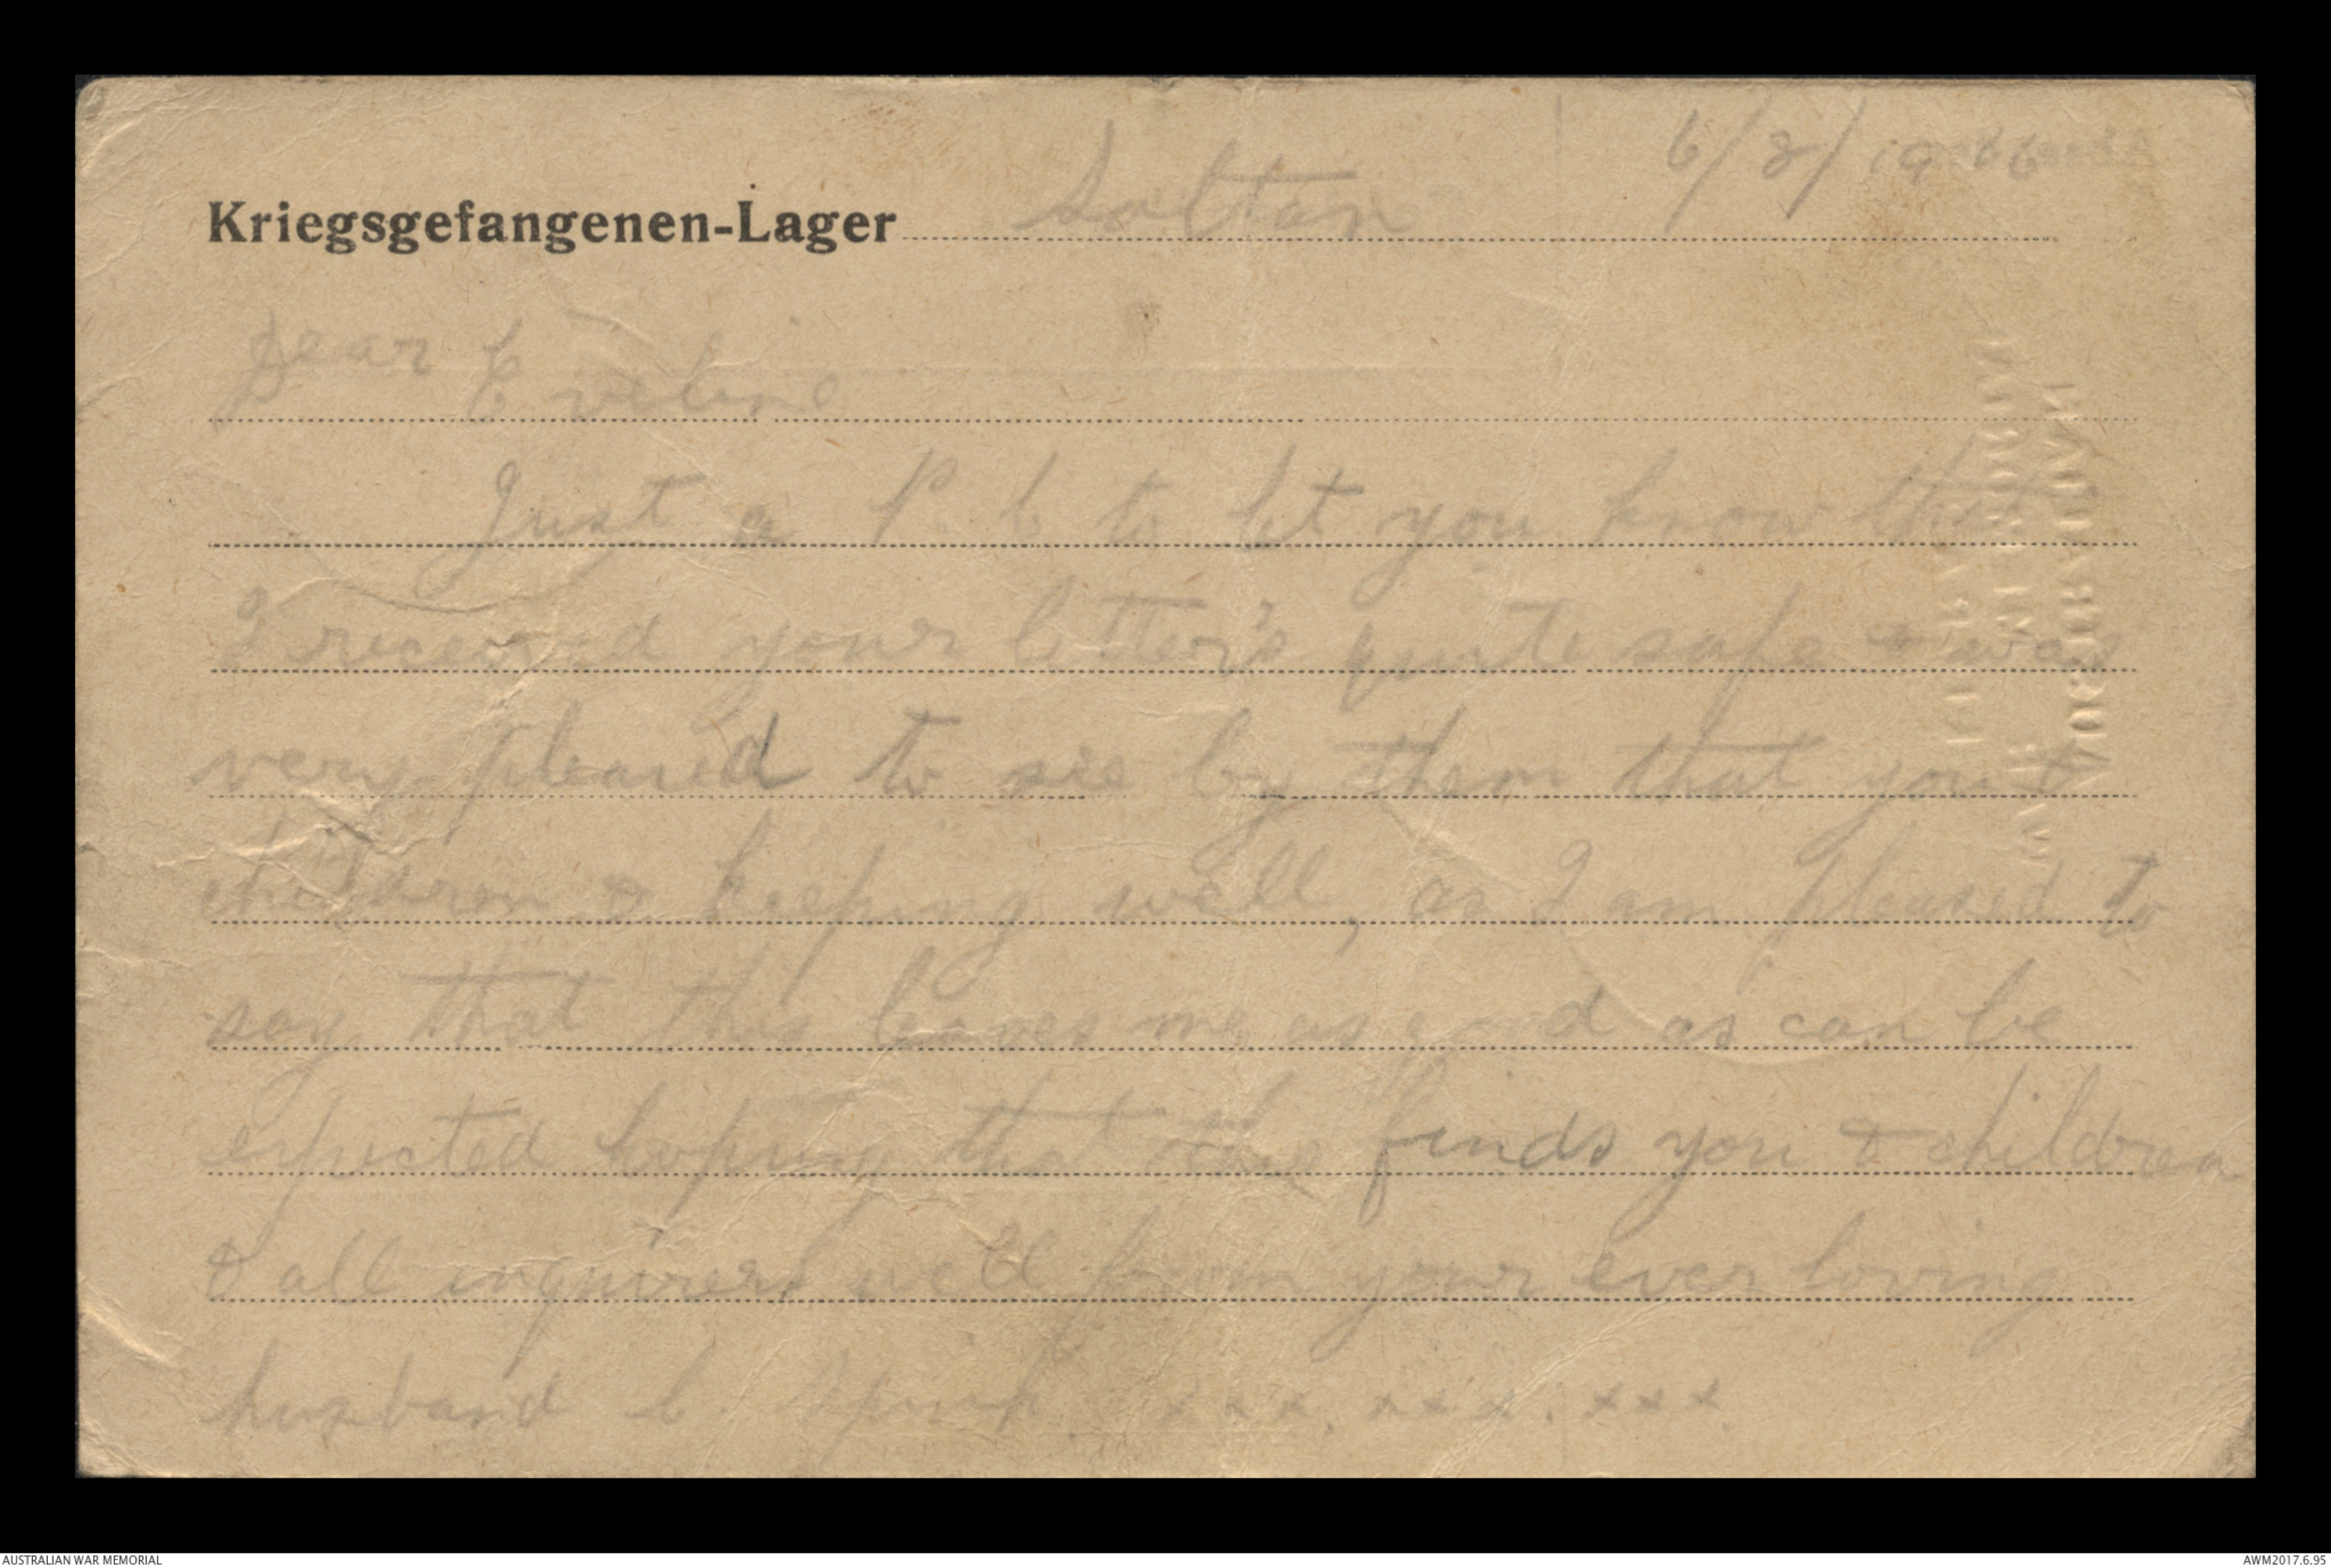 Soltan 6/8/19
Kriegsgefangenen-Lager
Dear Eveline
Just a P. C to let you know that
I received your letter's quite safe & was
very pleased to see by them that you &
children & keeping well, as I am pleased to
say that this leaves me as good as can be
expected hoping that this finds you & children
& all inquirers well from your ever loving
husband C. Spink xxx. xxx. xxx
AUSTRALIAN WAR MEMORIAL
AWM2017.6.95